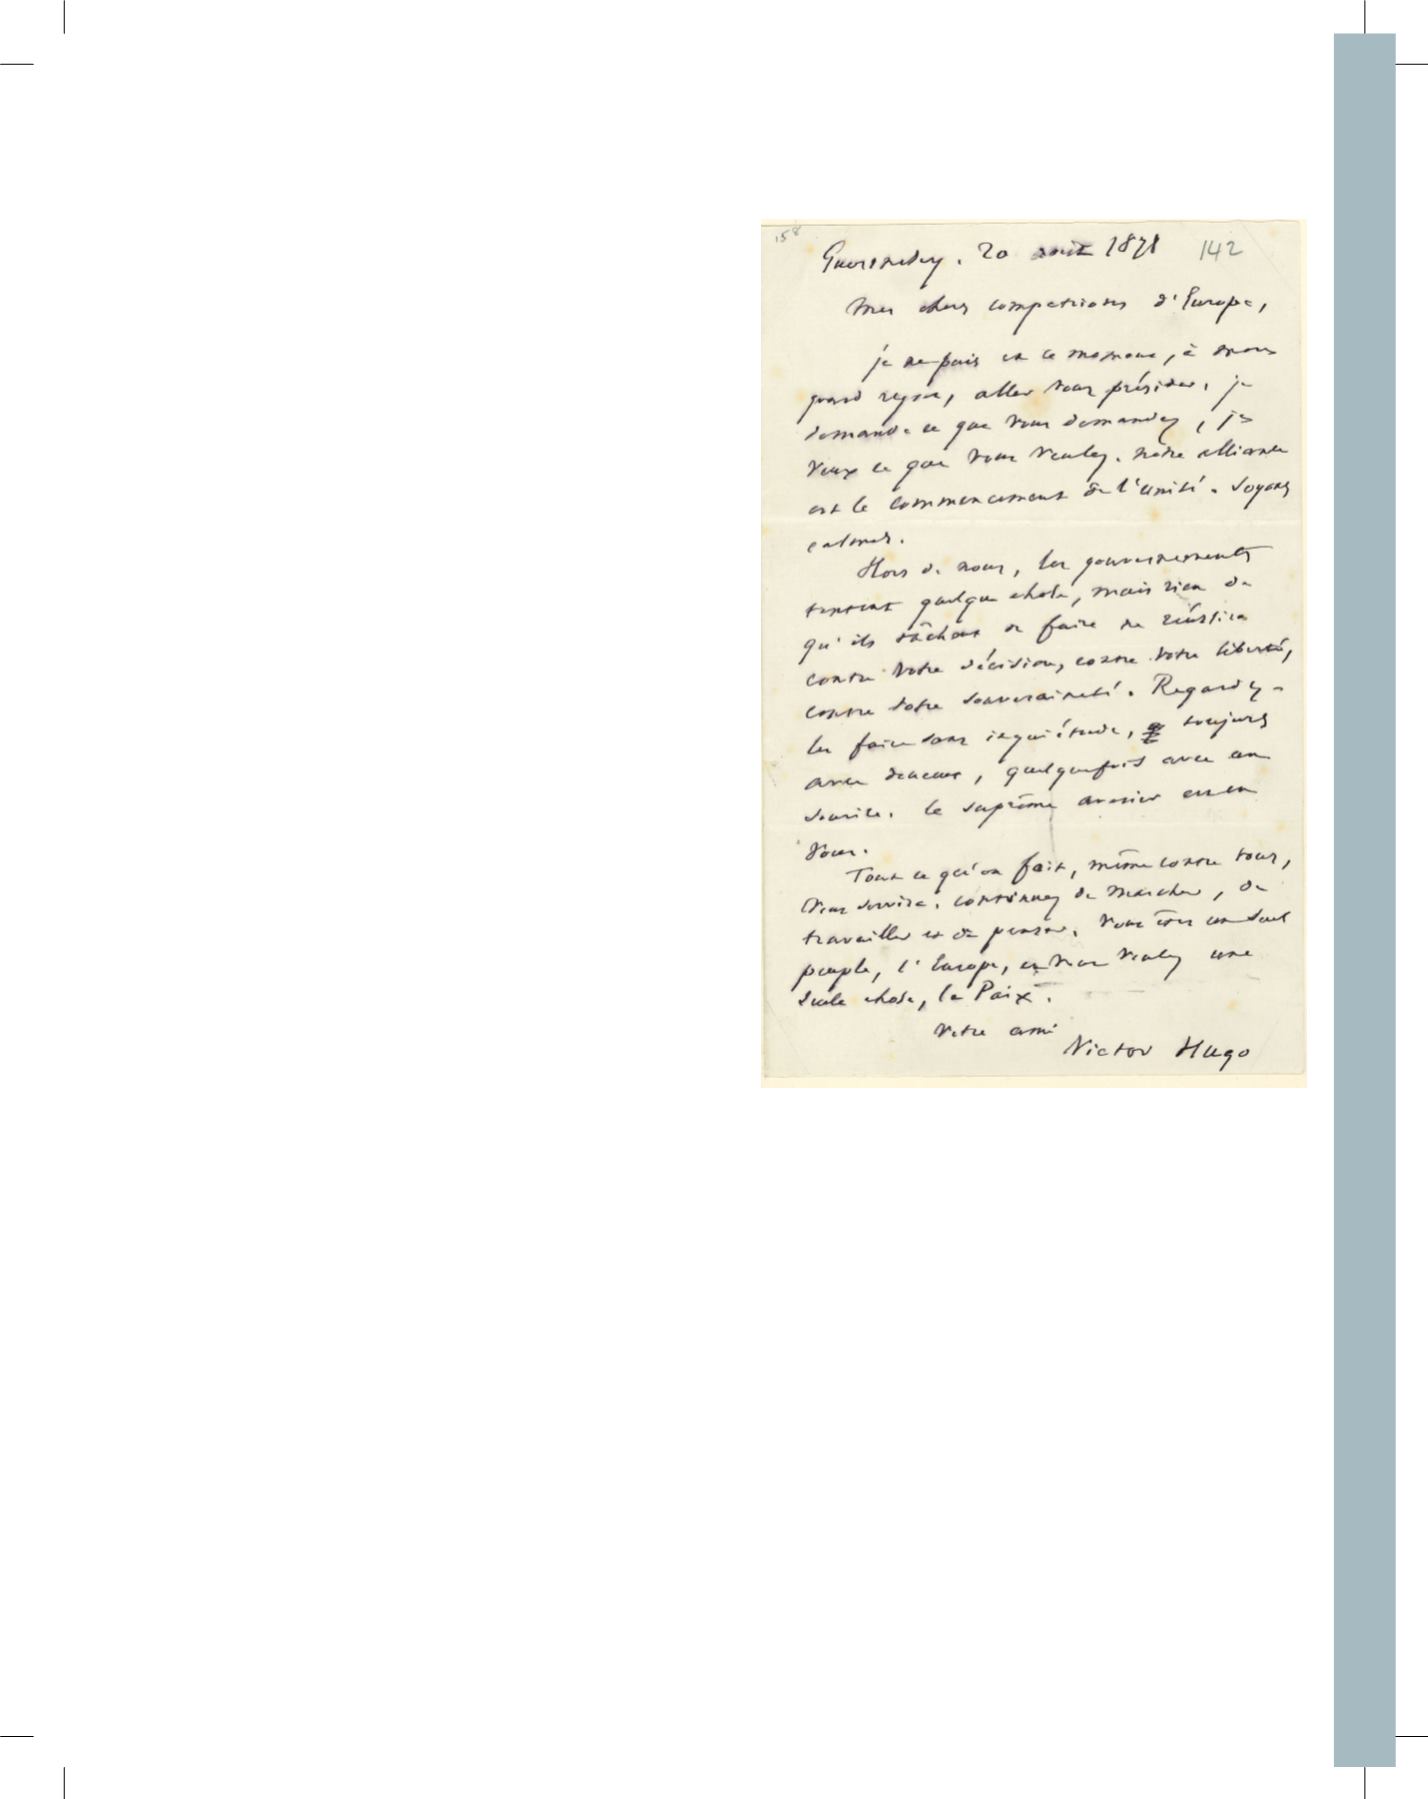 158
Guernesey. 20 août 1878 142
Mes chers compatriotes d'Europe,
je ne puis en ce moment, à mon
grand regret, aller vous présider. je
demande ce que vous demandez, je
veux ce que vous voulez. notre alliance
est le commencement de l'unité. Soyons
calmes.
Hors de nous, les gouvernements
tentent quelque chose, mais rien de
qu'ils tâchent de faire ne réussira
contre votre décision, contre votre liberté,
contre votre souveraineté. Regardez-
les faire sans inquiétude, toujours
avec douceur, quelquefois avec un
sourire. le suprême avenir est en
vous.
Tout ce qu'on fait, même contre vous,
vous servira. continuez de marcher, de
travailler et de penser. Vous êtes un seul
peuple, l'Europe, et vous voulez une
seule chose, la Paix.
Votre ami
Victor Hugo